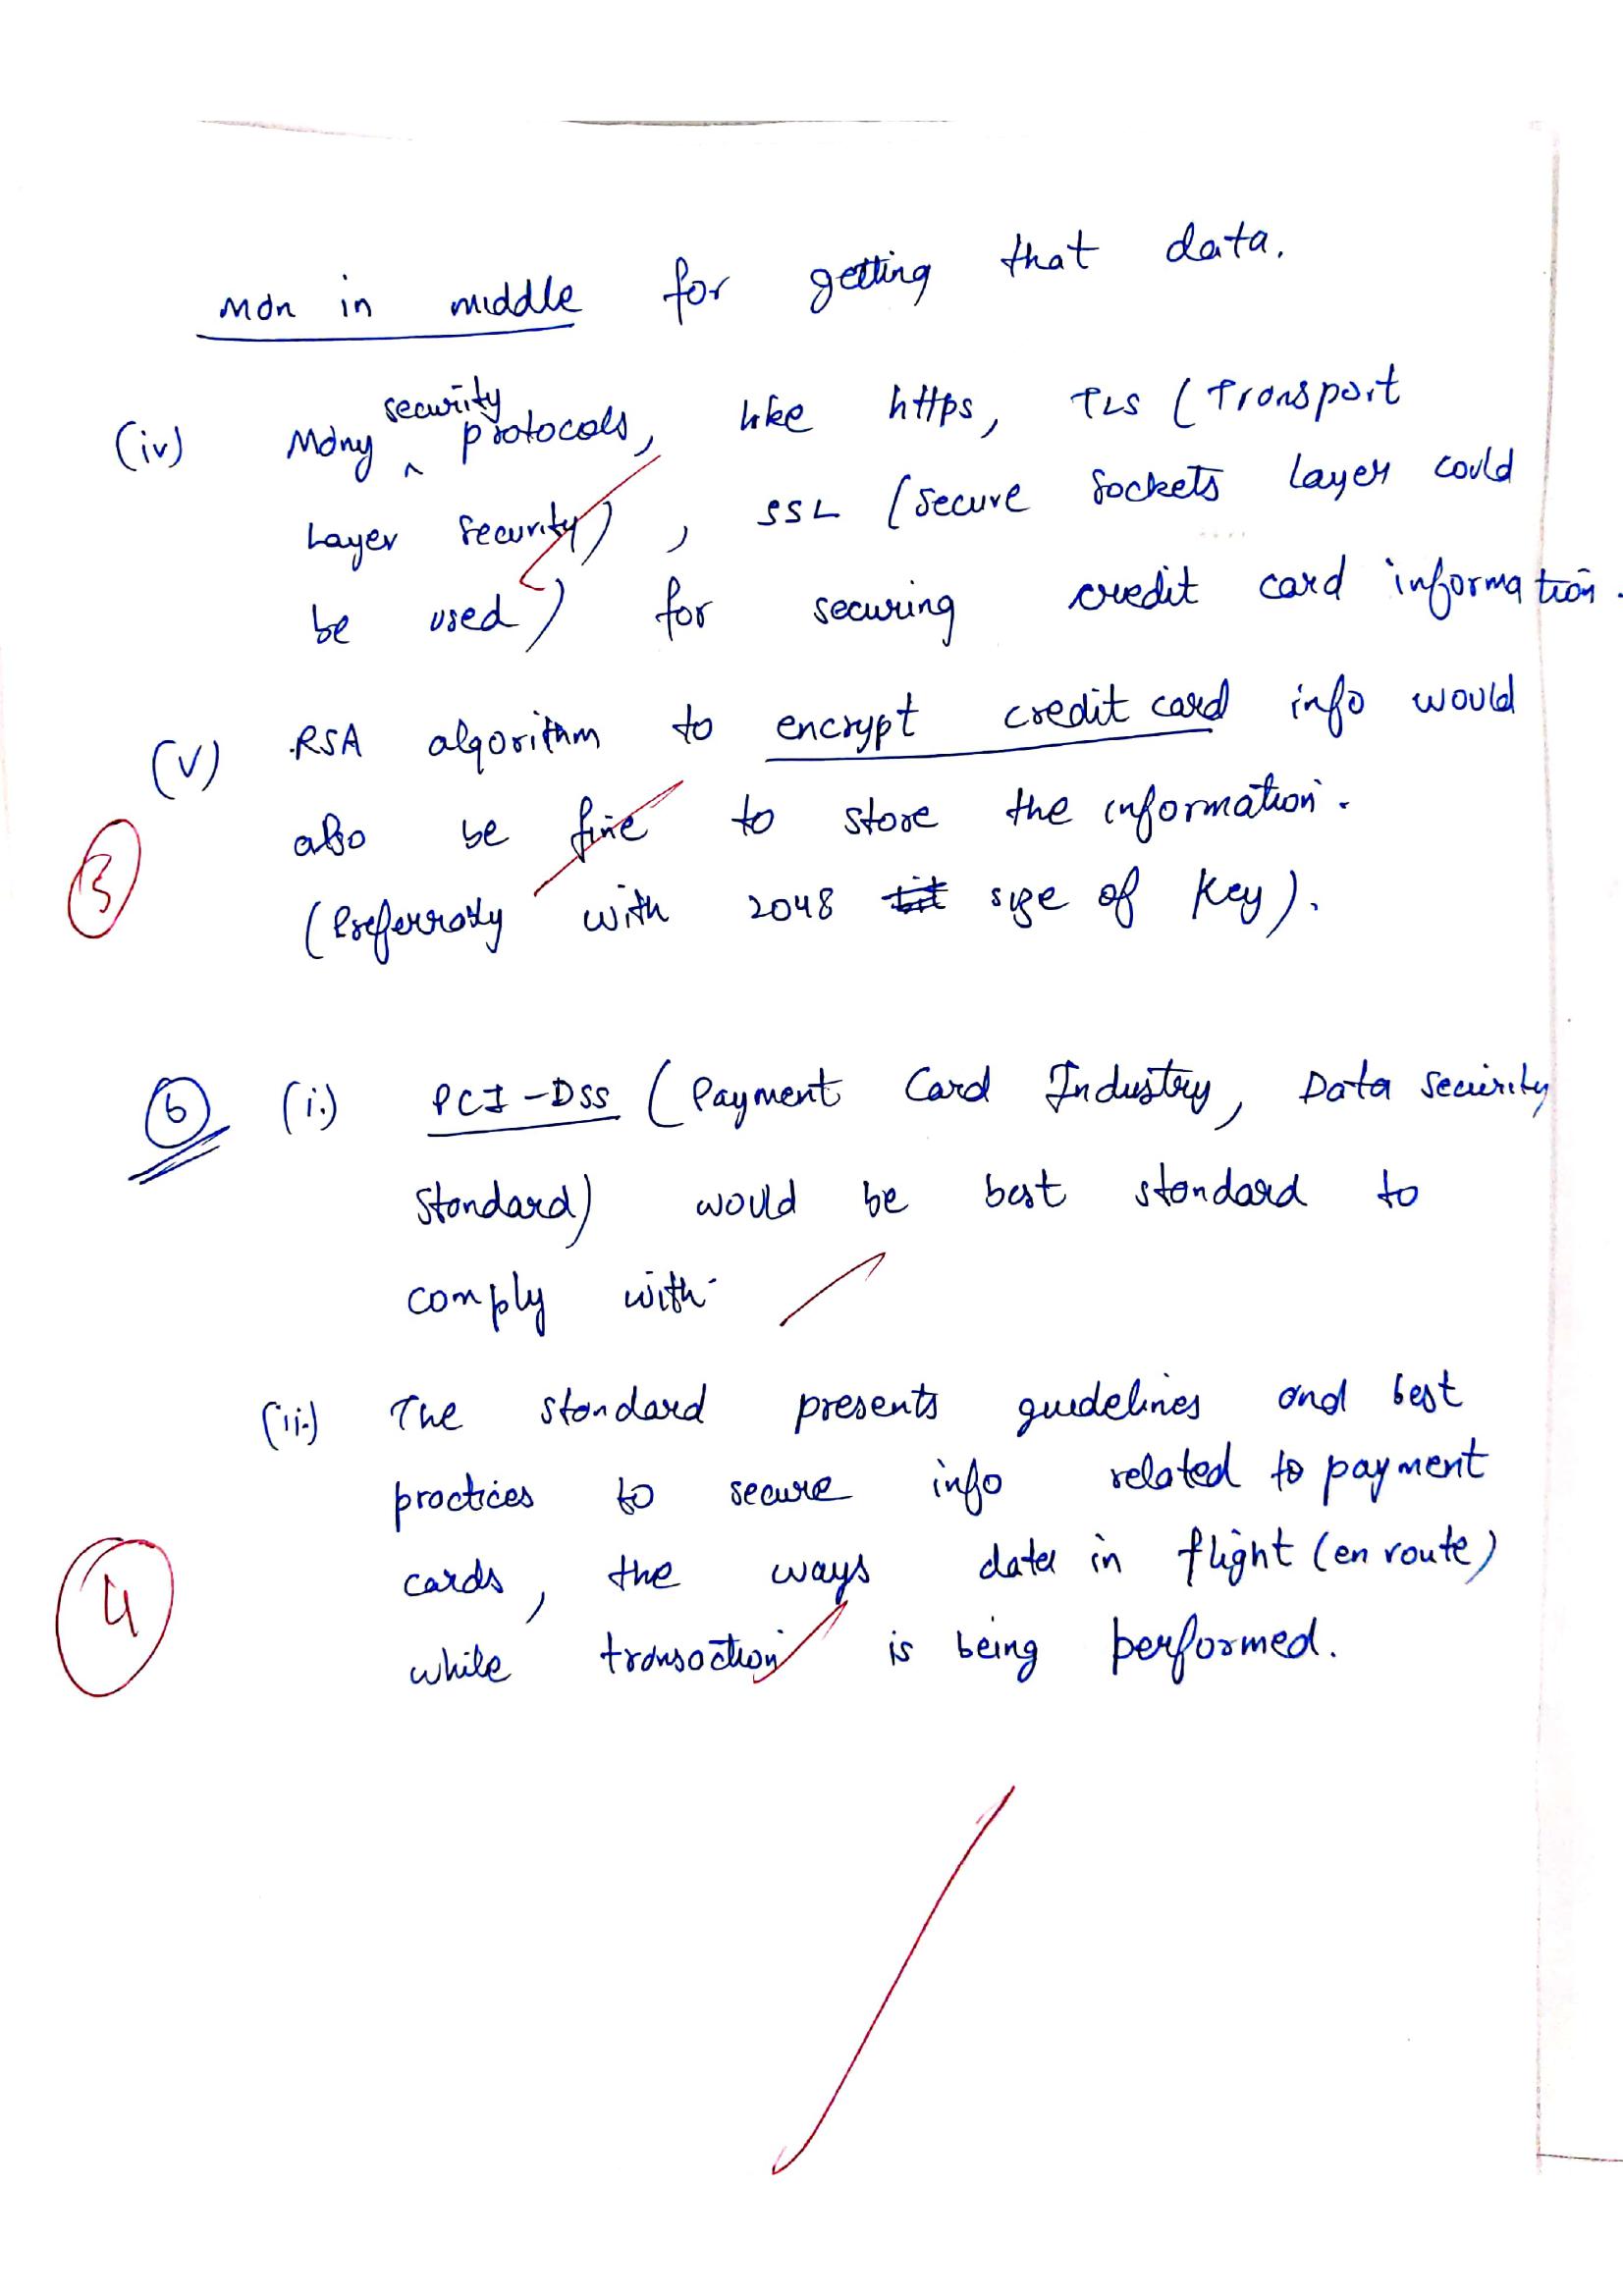 man in middle for getting that data.
security
(iv) Many ^ protocols, like https, TLS (Transport
Layer Security) , SSL (Secure Sockets Layer could
be used) for securing credit card information.
(v) RSA algorithm to encrypt credit card info would
also be fine to store the information.
3
(Preferraly with 2048 bit size of key).
6 (i.) PCI-DSS (Payment Card Industry, Data Security
Standard) would be best standard to
comply with.
(ii.) The standard presents guidelines and best
practices to secure info related to payment
cards, the ways data in flight (en route)
4
while transaction is being performed.